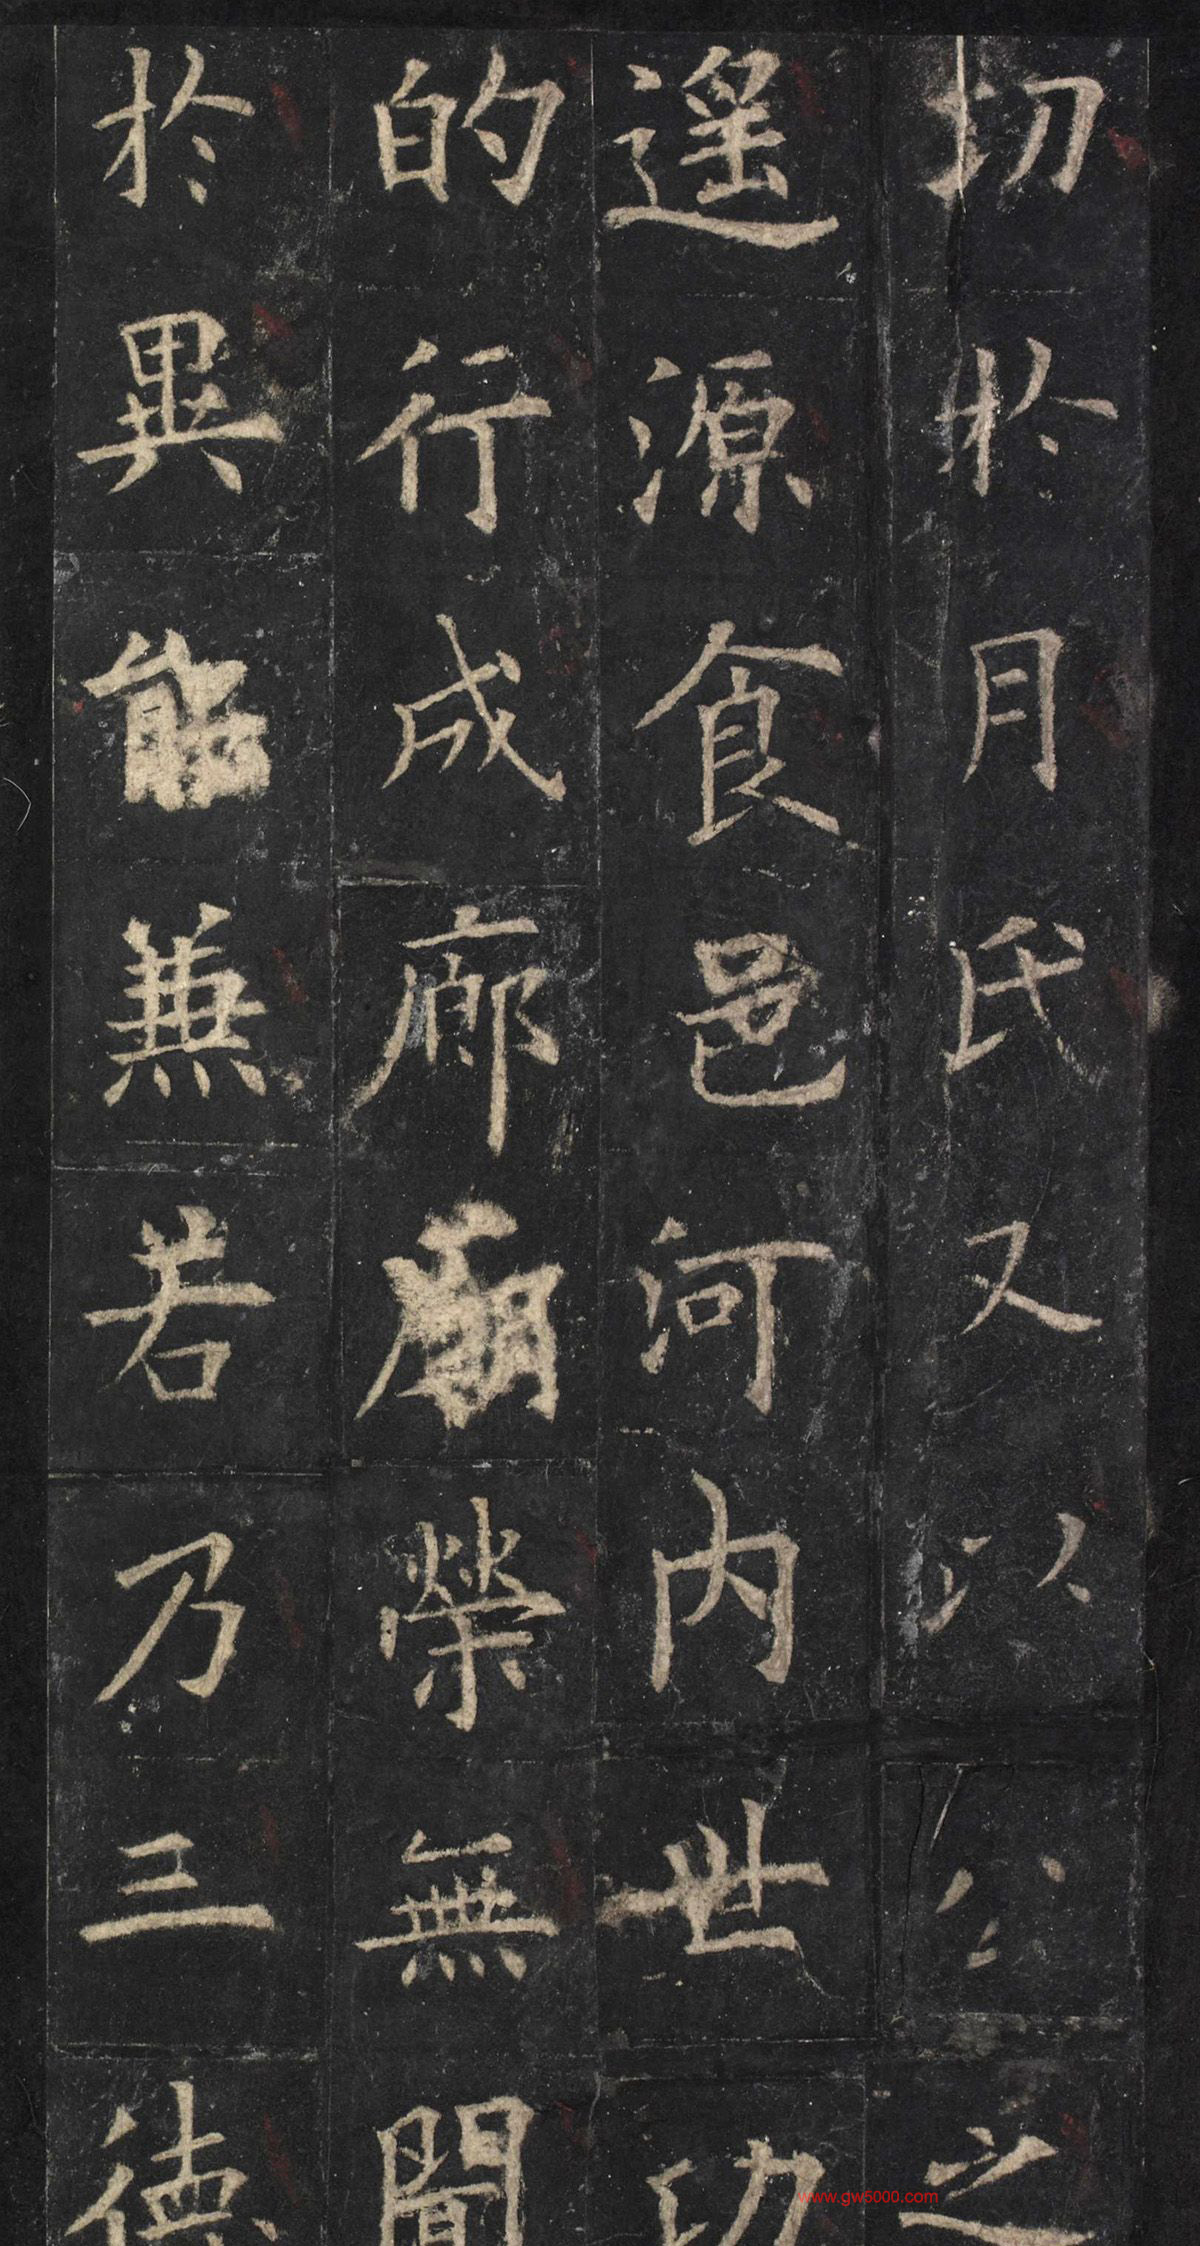 切於月氏又以公之
遥源食邑河内世功
的行成廊廟榮無聞
於異能兼若乃三德
www.gw5000.com